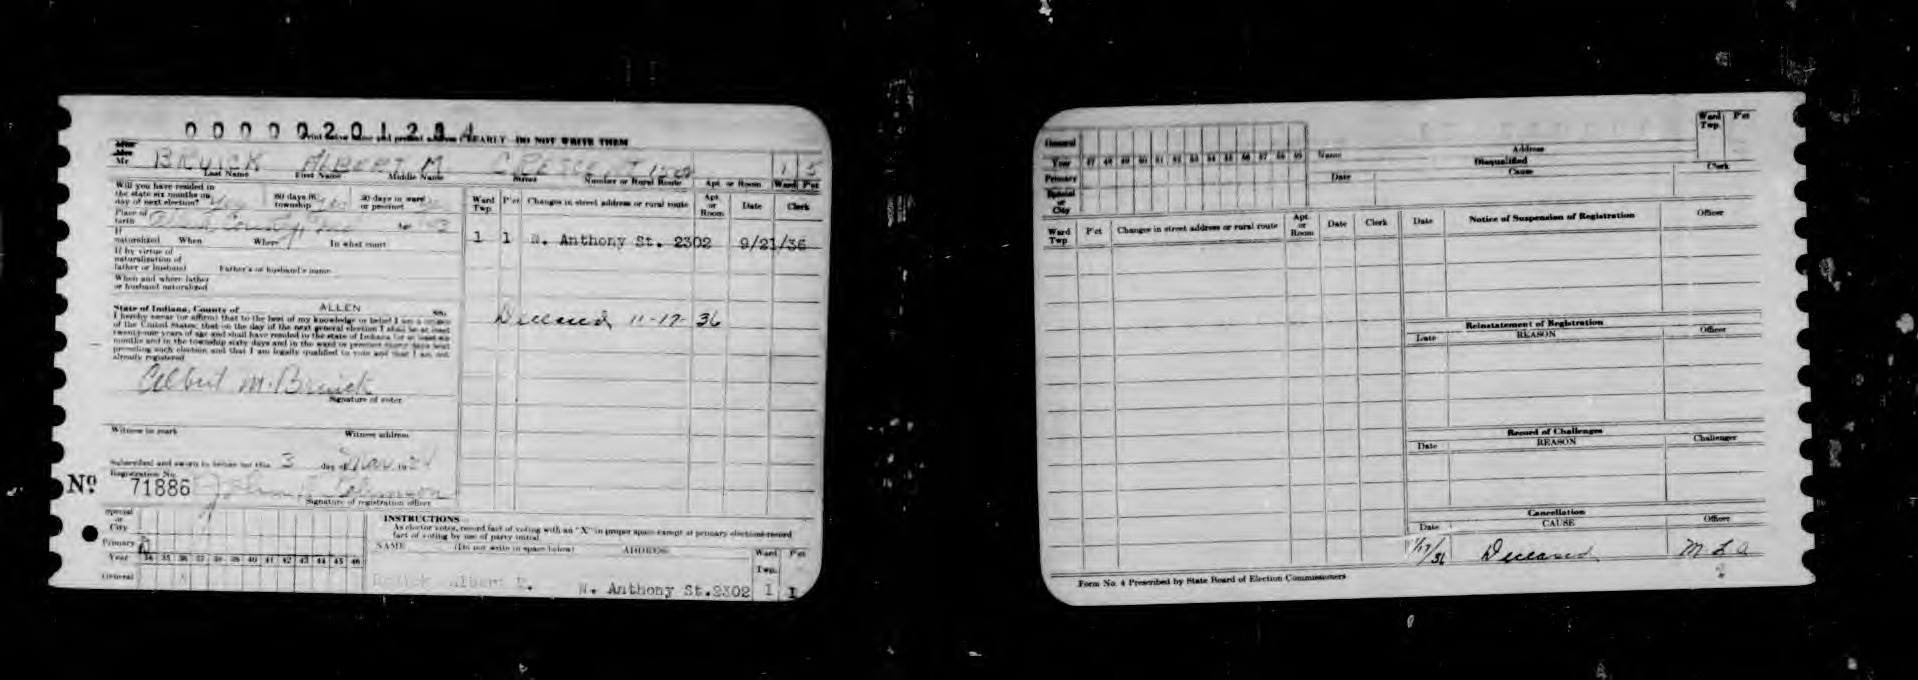 Print below name and present address CLEARLY DO NOT WRITE THEM
Mr BRUICK ALBERT M. CRESCENT 1 5
Last Name First Name Middle Name Street Number or Rural Route Apt. or Room Ward P'ct
Will you have resided in
the state six months on
day of next election? Yes
60 days in
township
30 days in ward
or precinct
Place of
birth Allen County, Ind
If
naturalized When Where In what court
If by virtue of
naturalization of
father or husband Father's or husband's name
When and where father
or husband naturalized
State of Indiana, County of ALLEN ss,
I hereby swear (or affirm) that to the best of my knowledge or belief I am a citizen
of the United States; that on the day of the next general election I shall be at least
twenty-one years of age and shall have resided in the state of Indiana for at least six
months and in the township sixty days and in the ward or precinct thirty days next
preceding such election and that I am legally qualified to vote and that I am not
already registered
Albert M. Bruick
Signature of voter
Witness to mark Witness address
Subscribed and sworn to before me this 3 day of
Registration No.
Nº 71886 John
Signature of registration officer
Ward Twp. P'ct Changes in street address or rural route Apt. or Room Date Clerk
1 1 N. Anthony St. 2302 9/21/36
Deceased 11-17-36
Special
or
City
Primary
Year 34 35 36 37 38 39 40 41 42 43 44 45 46
General
INSTRUCTIONS
As elector votes, record fact of voting with an "X" in proper space except at primary elections record
fact of voting by use of party initial
NAME (Do not write in space below) ADDRESS Ward Twp. P'ct
Bruick Albert N. Anthony St.2302 1 1
General
Year 47 48 49 50 51 52 53 54 55 56 57 58 59
Primary
Special
or
City
Name Address Ward Twp. P'ct
Disqualified
Date Cause Clerk
Ward Twp P'ct Changes in street address or rural route Apt. or Room Date Clerk
Date Notice of Suspension of Registration Officer
Reinstatement of Registration
Date REASON Officer
Record of Challenges
Date REASON Challenger
Cancellation
Date CAUSE Officer
11/17/36 Deceased
Form No. 4 Prescribed by State Board of Election Commissioners